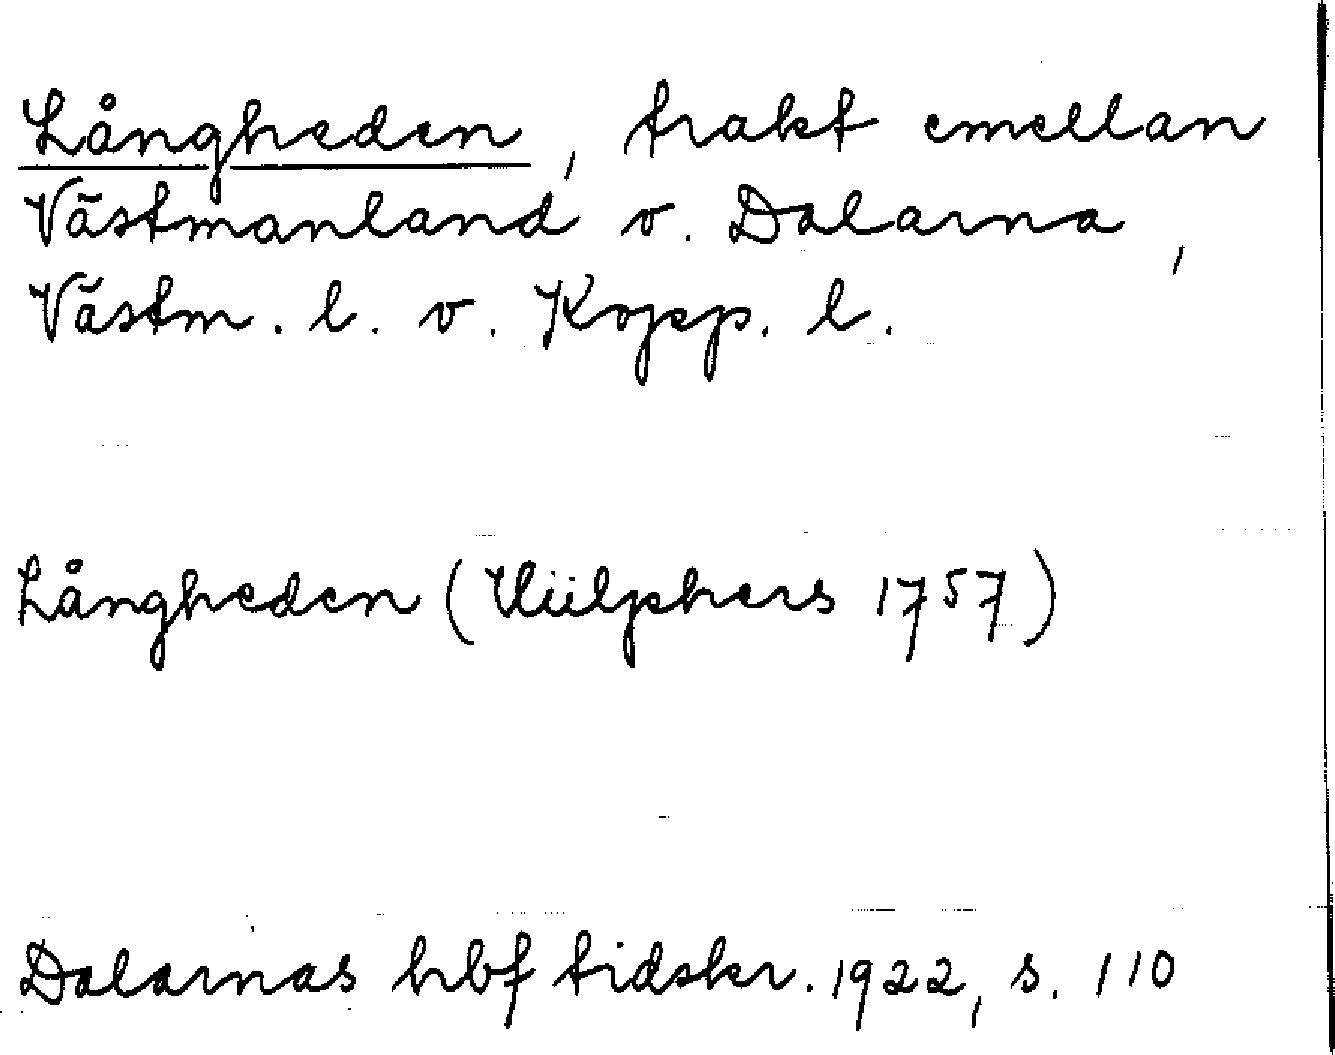 Långheden, trakt emellan
Västmanland o. Dalarna,
Västm. l. o. Kopp. l.
Långheden (Hülphers 1757)
Dalarnas hbf tidskr. 1922, s. 110